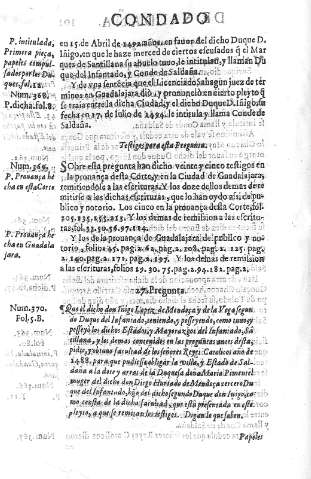 CONDADO
P. intitulada,
Primera pieça,
papeles compul-
sados por los Du-
ques, fol. 12.
Num. 368.
P. dicha, fol. 8.
en 15. de Abril de 1492. años, en favor del dicho Duque D.
Iñigo, en que le haze merced de ciertos escusados q̃ el Mar
ques de Santillana su abuelo tuuo, le intitulan, y llaman Du
que del Infantado, y Conde de Saldaña.
Y de vna sentencia que el Licenciado Sahagun juez de ter
minos en Guadalajara dio, y pronunció en cierto pleyto q̃
se traia entre la dicha Ciudad, y el dicho Duque D. Iñigo, su
fecha en 17. de Iulio de 1494. le intitula y llama Conde de
Saldaña.
Testigos para esta Pregunta.
Num. 369.
P. Prouança he
cha en esta Corte
P. Prouança he
cha en Guadala
jara.
Sobre esta pregunta han dicho veinte y cinco testigos en
la prouança desta Corte, y en la Ciudad de Guadalajara,
remitiendose a las escrituras. Y los doze dellos demas de re
mitirse a las dichas escrituras, que lo han oydo assi, de publi
co y notorio. Los cinco en la prouança desta Corte, fol.
105. 135. 255. 213. Y los demas de remision a las escritu-
ras, fol. 33. 50. 56. 97. 124.
Y los de la prouança de Guadalajara, de publico y no-
torio, folios 45. pag. 2. 62. pag. 2. 108. pag. 2. 125. pag.
2. 140. pag. 2. 171. pag. 2. 197. Y los demas de remision
a las escrituras, folios 19. 30. 75. pag. 2. 94. 181. pag. 2.
27. Pregunta.
Num. 370.
Fol. 5. B.
Que el dicho don Iñigo Lopez de Mendoça y de la Vega segun
do Duque del Infantado, teniendo, y posseyendo, como tuuo, y
posseyò los dichos Estados, y Mayorazgos del Infantado, San
tillana, y los demas contenidos en las preguntas antes desta, pi
dio, y obtuuo facultad de los señores Reyes Catolicos año de
1488. para que pudiesse obligar la villa, y Estado de Sal-
daña a la dote y arras de la Duquesa doña Maria Pimentel
muger del dicho don Diego Hurtado de Mendoça tercero Du
que del Infantado, hijo del dicho segundo Duque don Iñigo, co
mo consta de la dicha facultad, que está presentada en este
pleyto, a que se remiten los testigos. Digan lo que saben.
Papeles